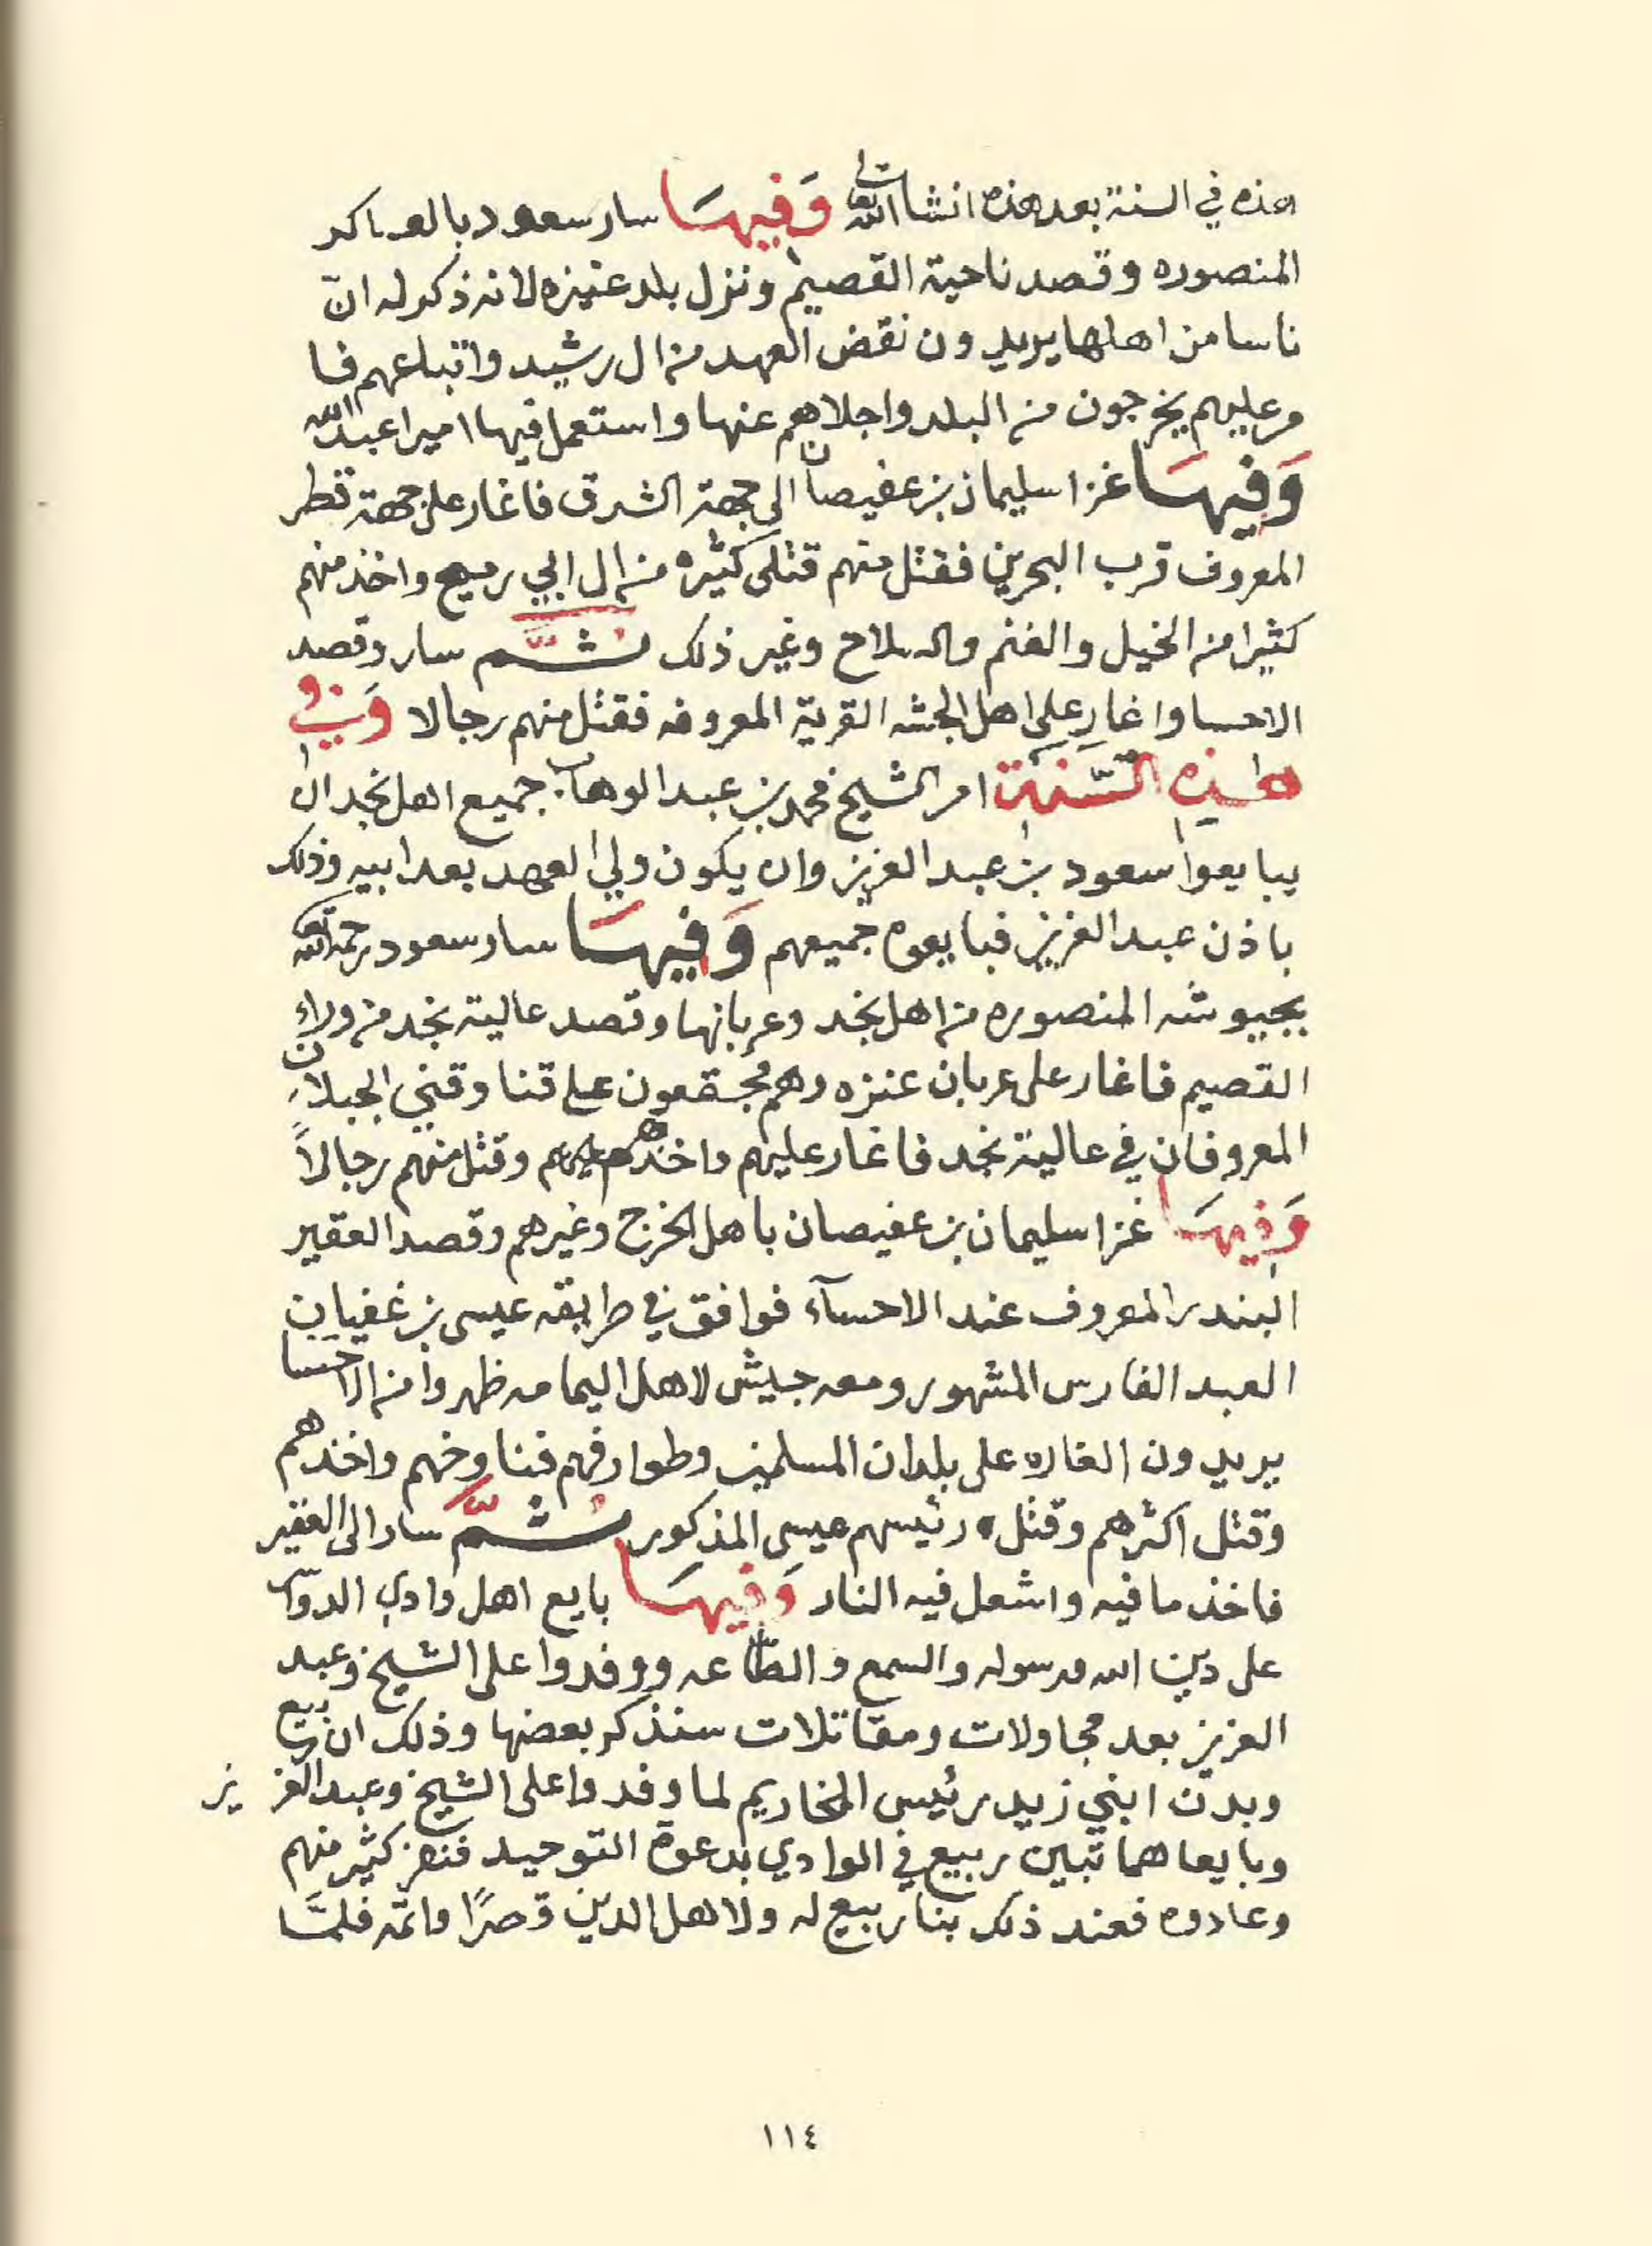 هذه في السنة بعد هذه انشا الله تعالى وَفيهَا سار سعود بالعساكر
المنصوره وقصد ناحية القصيم ونزل بلد عنيزه لانه ذكر له انّ
ناسا من اهلها يريدون نقض العهد من ال رشيد واتباعهم فا
مر عليهم يخرجون من البلد واجلاهم عنها واستعمل فيها اميرا عبدالله
وَفيهَا غزا سليمان بن عفيصان الى جهة الشرق فاغار على جهة قطر
المعروف قرب البحرين فقتل منهم قتلى كثيره من ال ابي رميح واخذ منهم
كثيرا من الخيل والغنم والسلاح وغير ذلك ثُمَّ سار وقصد
الاحسا واغار على اهل الجشه القرية المعروفه فقتل منهم رجالا وَفي
هذِه السَّنَة امر الشيخ محمد بن عبد الوهاب جميع اهل نجد ان
يبايعوا سعود بن عبد العزيز وان يكون ولي العهد بعد ابيه وذلك
باذن عبد العزيز فبايعوه جميعهم وَفيهَا سار سعود رحمه الله تعالى
بجيوشه المنصوره من اهل نجد وعربانها وقصد عالية نجد من وراء
القصيم فاغار على عربان عنزه وهم مجتمعون على قنا وقني الجبلان
المعروفان في عالية نجد فاغار عليهم واخذهم وقتل منهم رجالاً
وَفيهَا غزا سليمان بن عفيصان باهل الخرج وغيرهم وقصد العقير
البندر المعروف عند الاحسآء فوافق في طريقه عيسى بن غفيان
العبد الفارس المشهور ومعه جيش لاهل اليمامه ظهروا من الاحسا
يريدون الغاره على بلدان المسلمين وطوارفهم فناوخهم واخذهم
وقتل اكثرهم وقتل رئيسهم عيسى المذكور ثُمَّ سار الى العقير
فاخذ ما فيه واشعل فيه النار وَفيهَا بايع اهل وادي الدواسر
على دين الله ورسوله والسمع والطّاعه ووفدوا على الشيخ وعبد
العزيز بعد مجاولات ومقاتلات سنذكر بعضها وذلك ان ربيع
وبدن ابني زيد رئيس المخاريم لما وفدوا على الشيخ وعبد العزيز
وبايعاهما تبين ربيع في الوادي بدعوة التوحيد فنفر كثير منهم
وعادوه فعند ذلك بنا ربيع له ولاهل الدين قصرًا واتمّه فلمَّا
١١٤